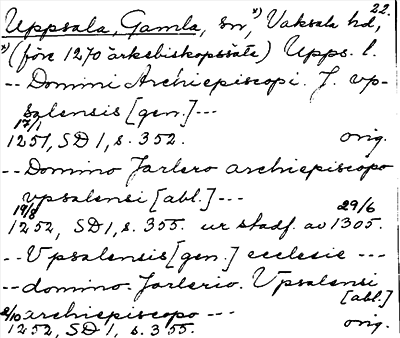 22.
Uppsala, Gamla, sn,ˣ⁾ Vaksala hd,
ˣ⁾(före 1270 ärkebiskopssäte) Upps. l.
-- Domini Archiepiscopi. J. vp-
salensis [gen.] ---
17/1
1251, SD 1, s. 352. orig.
-- Domino Jarlero archiepiscopo
vpsalensi [abl.] ---
19/8 29/6
1252, SD 1, s. 355. ur stadf. av 1305.
-- Vpsalensis [gen.] ecclesie ---
-- domino. Jarlerio. Vpsalensi
[abl.]
archiepiscopo ---
2/10
1252, SD 1, s. 355. orig.